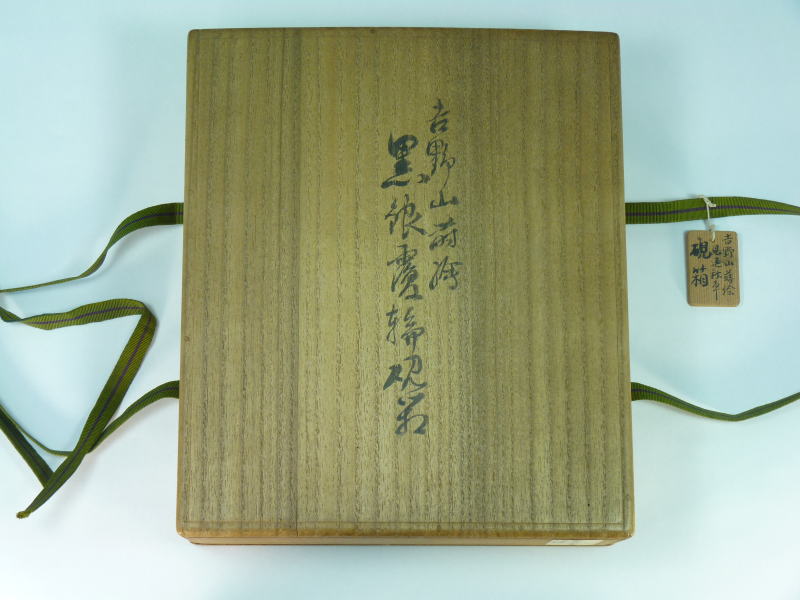 吉野山蒔絵
黒銀覆輪硯箱
吉野山蒔絵
硯箱